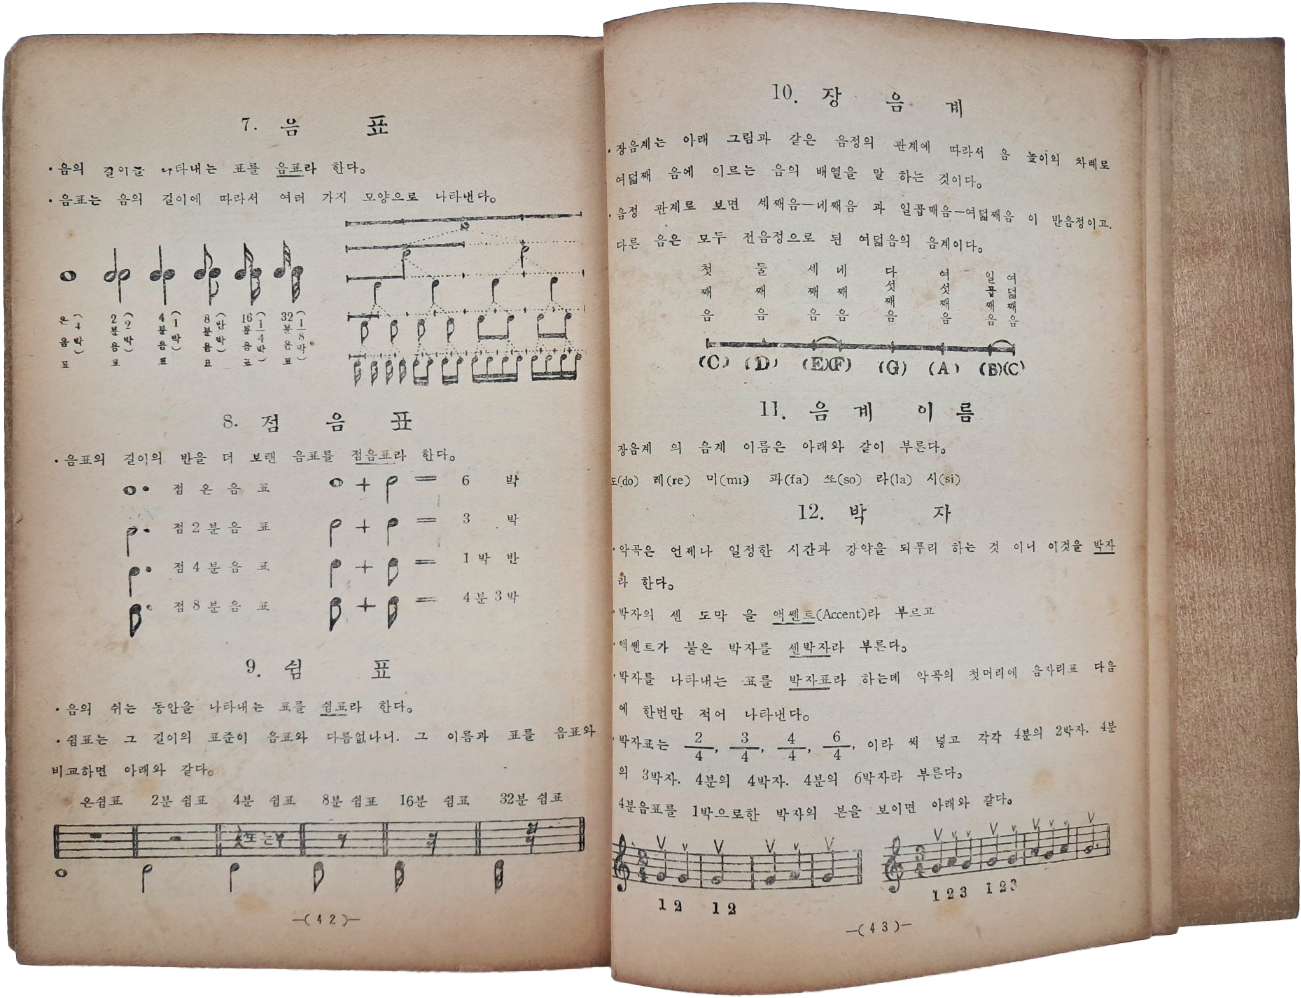 7. 음 표
· 음의 길이를 나타내는 표를 음표라 한다。
· 음표는 음의 길이에 따라서 여러 가지 모양으로 나타낸다。
온음표 (4박)
2분음표 (2박)
4분음표 (1박)
8분음표 (반박)
16분음표 (1/4박)
32분음표 (1/8박)
8. 점 음 표
· 음표의 길이의 반을 더 보탠 음표를 점음표라 한다。
점 온 음 표 + = 6 박
점 2 분 음 표 + = 3 박
점 4 분 음 표 + = 1 박 반
점 8 분 음 표 + = 4 분 3 박
9. 쉼 표
· 음의 쉬는 동안을 나타내는 표를 쉼표라 한다。
· 쉼표는 그 길이의 표준이 음표와 다름없나니. 그 이름과 표를 음표와
비교하면 아래와 같다。
온쉼표 2분 쉼표 4분 쉼표 8분 쉼표 16분 쉼표 32분 쉼표
또는
—( 4 2 )—
10. 장 음 계
· 장음계는 아래 그림과 같은 음정의 관계에 따라서 음 높이의 차례로
여덟째 음에 이르는 음의 배열을 말 하는 것이다。
· 음정 관계로 보면 세째음—네째음 과 일곱째음—여덟째음 이 반음정이고,
다른 음은 모두 전음정으로 된 여덟음의 음계이다。
첫째음 둘째음 세째음 네째음 다섯째음 여섯째음 일곱째음 여덟째음
(C) (D) (E)(F) (G) (A) (B)(C)
11. 음 계 이 름
장음계 의 음계 이름은 아래와 같이 부른다。
도(do) 레(re) 미(mi) 파(fa) 쏘(so) 라(la) 시(si)
12. 박 자
· 악곡은 언제나 일정한 시간과 강약을 되푸리 하는 것 이니 이것을 박자
라 한다。
· 박자의 센 도막 을 액쎈트(Accent)라 부르고
· 액쎈트가 붙은 박자를 센박자라 부른다。
· 박자를 나타내는 표를 박자표라 하는데 악곡의 첫머리에 음자리표 다음
에 한번만 적어 나타낸다。
· 박자표는 2/4, 3/4, 4/4, 6/4, 이라 써 넣고 각각 4분의 2박자. 4분
의 3박자. 4분의 4박자. 4분의 6박자라 부른다。
4분음표를 1박으로한 박자의 본을 보이면 아래와 같다。
V v V V v V V v v V v V v v V
2/4 3/4
1 2 1 2 1 2 3 1 2 3
—( 4 3 )—